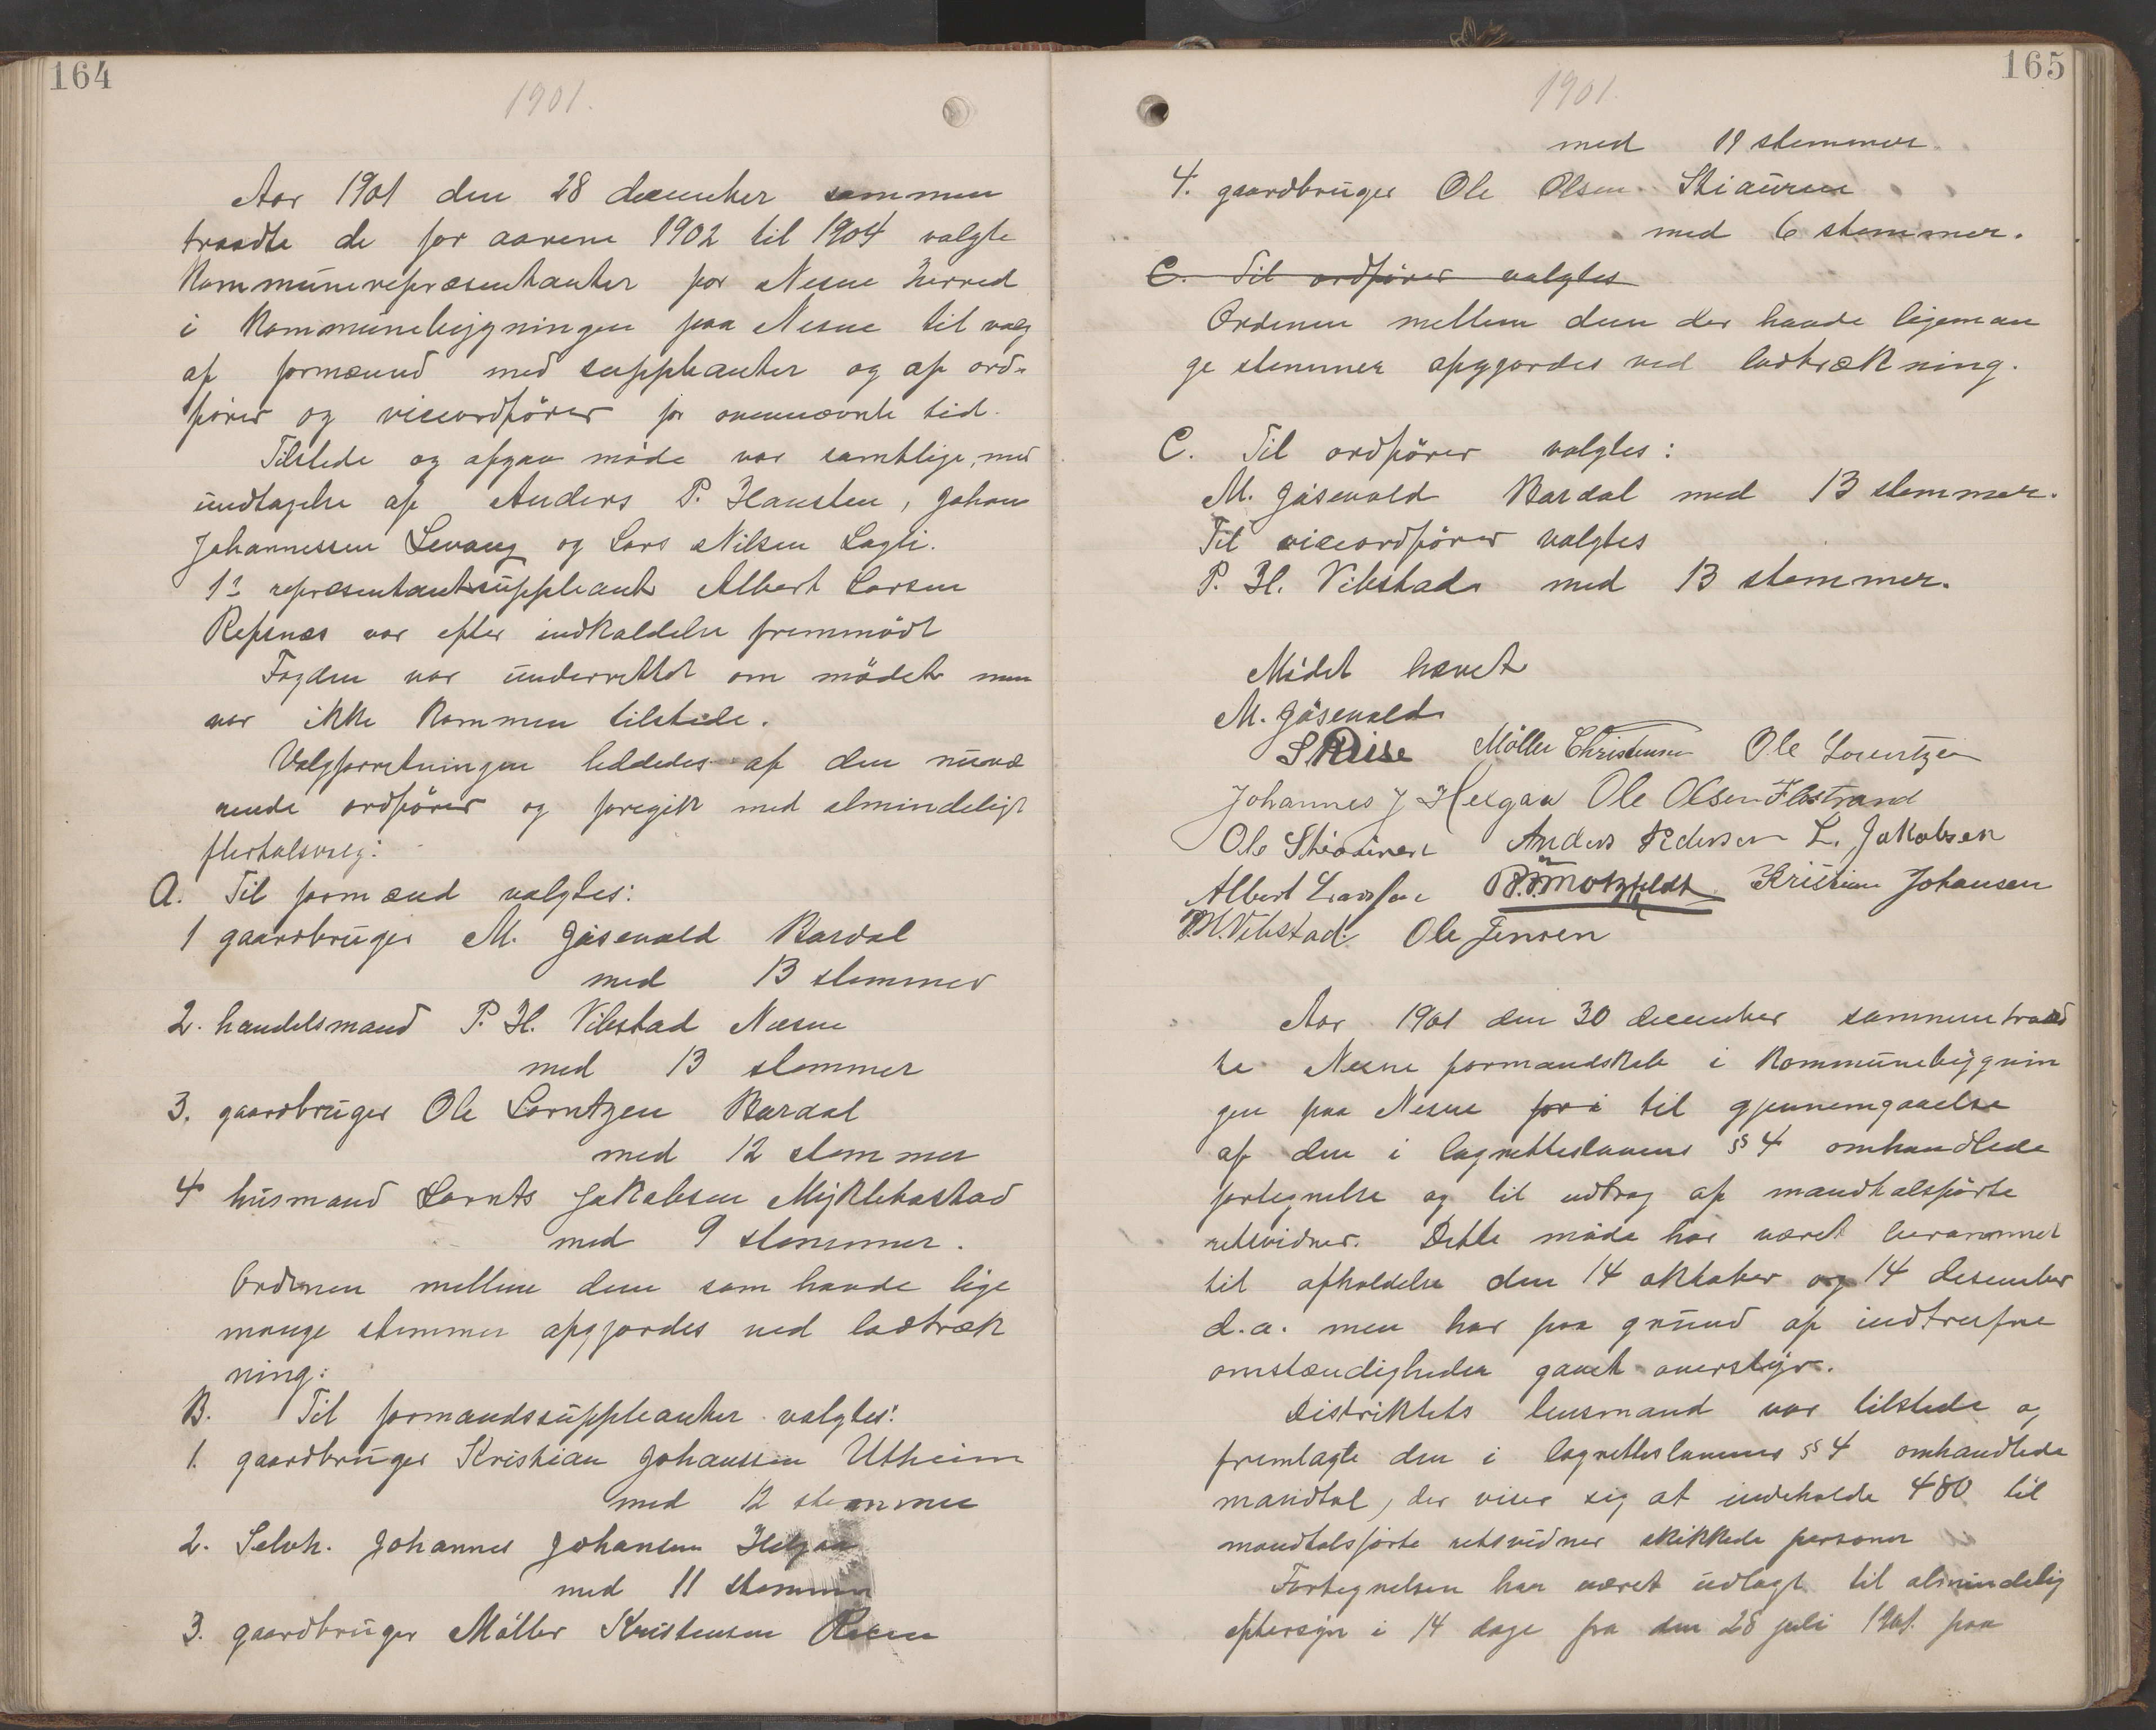 164
1901.
Aar 1901 den 28 december sammen
traadte de for aarene 1902 til 1904 valgte
Kommunerepræsentanter for Nesne Herred
i Kommunebygningen paa Nesne til valg
af formænd med suppleanter og af ord-
fører og viceordfører for ovennævnte tid.
Tilstede og afgav møde var samtlige, med
undtagelse af Anders P. Hansten, Johan
Johannessen Levang og Lars Nilsen Sagli.
1ste repræsentantsuppleant Albert Larsen
Refsnes var efter indkaldelse fremmødt
Fogden var underrettet om mødet men
var ikke kommen tilstede.
Valgforretningen lededes af den nuvæ
rende ordfører og foregik med almindeligt
flertalsvalg:
A. Til formænd valgtes:
1 gaardbruger M. Jåsevold Bardal
med 13 stemmer
2. handelsmand P. H. Vibstad Nesne
med 13 stemmer
3. gaardbruger Ole Lorntzen Bardal
med 12 stemmer
4 husmand Lornts Jakobsen Myklebostad
med 9 stemmer.
Ordenen mellem dem som havde lige
mange stemmer afgjordes ved lodtræk
ning:
B. Til formandssuppleanter valgtes:
1. gaardbruger Kristian Johanssen Utheim
med 12 stemmer
2. Selvh. Johannes Johansen Helgaa
med 11 stemmer
3. gaardbruger Møller Kristensen
165
1901.
med 11 stemmer
4. gaardbruger Ole Olsen Skiauren
med 6 stemmer.
C. Til ordfører valgtes
Ordenen mellem dem der havde ligeman
ge stemmer afgjordes ved lodtrækning.
C. Til ordfører valgtes:
M. Jåsevold Bardal med 13 stemmer.
Til viceordfører valgtes
P. H. Vibstad med 13 stemmer.
Mødet hævet
M. Jåsevold
Møller Christensen Ole Lorentzen
Johannes J Helgaa Ole Olsen Flostrand
Ole Skiauren Anders Pedersen L. Jakobsen
Albert Larssen Motzfeldt Kristian Johansen
P.H. Vibstad. Ole Jensen
Aar 1901 den 30 december sammentraad
te Nesne formandskab i Kommunebygnin
gen paa Nesne for i til gjennemgaaelse
af den i lagrettelovens §§ 4 omhandlede
fortegnelse og til udtrag af mandtalsførte
retsvidner. Dette møde har været berammet
til afholdelse den 14 oktober og 14 desember
d.a. men har paa grund af indtrufne
omstændigheder gaaet overstyr.
Distriktets lensmand var tilstede og
fremlagte den i lagrettelovens §§ 4 omhandlede
mandtal, der viser sig at indeholde 480 til
mandtalsførte retsvidner skikkede personer
Fortegnelsen har været udlagt til almindelig
eftersyn i 14 dage fra den 28 juli 1901. paa